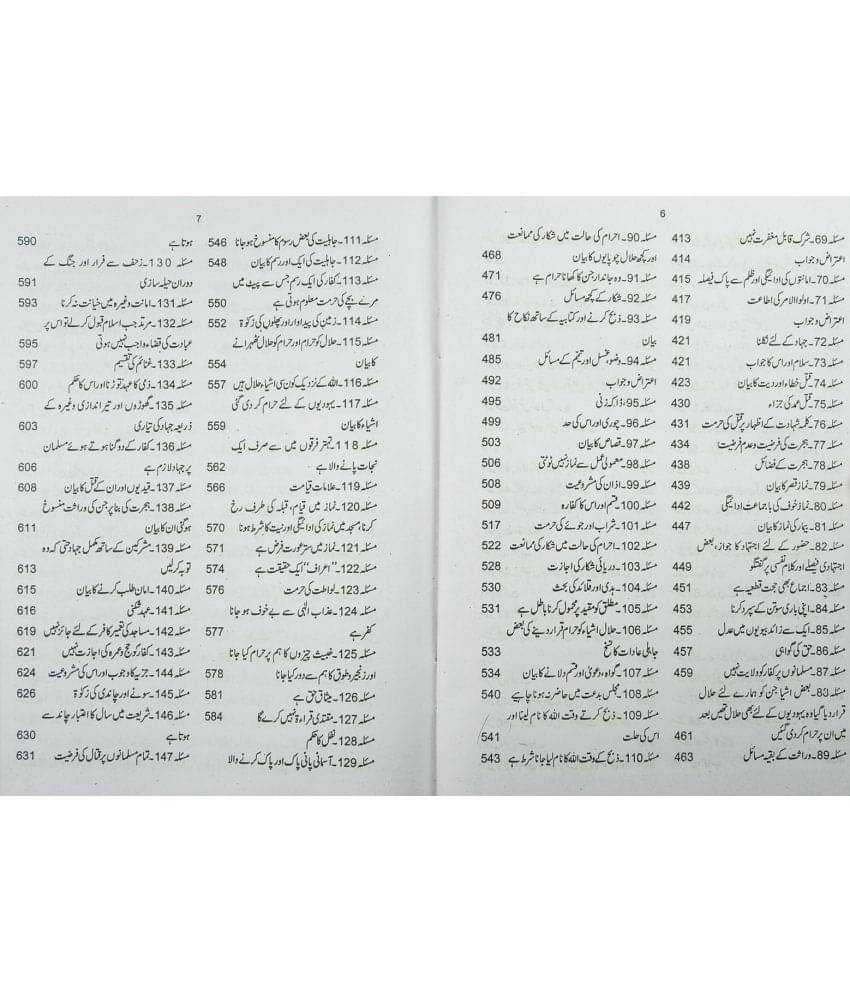 6
مسئلہ 69۔ شرک قابل مغفرت نہیں 413
اعتراض و جواب 414
مسئلہ 70۔ امانتوں کی ادائیگی اور ظلم سے پاک فیصلہ 415
مسئلہ 71۔ اولوا الامر کی اطاعت 417
اعتراض و جواب 419
مسئلہ 72۔ جہاد کے لئے نکلنا 421
مسئلہ 73۔ سلام اور اس کا جواب 421
مسئلہ 74۔ قتل خطاء اور دیت کا بیان 423
مسئلہ 75۔ قتل عمد کی جزاء 430
مسئلہ 76۔ کلمہ شہادت کے اظہار پر قتل کی حرمت 431
مسئلہ 77۔ ہجرت کی فرضیت و عدم فرضیت 434
مسئلہ 78۔ ہجرت کے فضائل 438
مسئلہ 79۔ نماز قصر کا بیان 439
مسئلہ 80۔ نماز خوف کی با جماعت ادائیگی 442
مسئلہ 81۔ بیمار کی نماز کا بیان 447
مسئلہ 82۔ حضور کے لئے اجتہاد کا جواز، بعض
اجتہادی فیصلے اور کلام نفسی پر گفتگو 449
مسئلہ 83۔ اجماع بھی حجت قطعیہ ہے 451
مسئلہ 84۔ اپنی باری سوتن کے سپرد کرنا 453
مسئلہ 85۔ ایک سے زائد بیویوں میں عدل 455
مسئلہ 86۔ حق کی گواہی 457
مسئلہ 87۔ مسلمانوں پر کفار کو ولایت نہیں 459
مسئلہ 83۔ بعض اشیا جن کو ہمارے لئے حلال
قرار دیا گیا وہ یہودیوں کے لئے بھی حلال تھیں بعد
میں ان پر حرام کر دی گئیں 461
مسئلہ 89۔ وراثت کے بقیہ مسائل 463
مسئلہ 90۔ احرام کی حالت میں شکار کی ممانعت
اور کچھ حلال چوپایوں کا بیان 468
مسئلہ 91۔ وہ جاندار جن کا کھانا حرام ہے 471
مسئلہ 92۔ شکار کے کچھ مسائل 476
مسئلہ 93۔ ذبح کرنے اور کتابیہ کے ساتھ نکاح کا
بیان 481
مسئلہ 94۔ وضو، غسل اور تیمم کے مسائل 485
اعتراض و جواب 492
مسئلہ 95۔ ڈاکہ زنی 495
مسئلہ 96۔ چوری اور اس کی حد 499
مسئلہ 97۔ قصاص کا بیان 503
مسئلہ 98۔ معمولی عمل سے نماز نہیں ٹوٹتی 506
مسئلہ 99۔ اذان کی مشروعیت 508
مسئلہ 100۔ قسم اور اس کا کفارہ 509
مسئلہ 101۔ شراب اور جوئے کی حرمت 517
مسئلہ 102۔ احرام کی حالت میں شکار کی ممانعت 522
مسئلہ 103۔ دریائی شکار کی اجازت 528
مسئلہ 104۔ ہدی اور قلائد کی بحث 530
مسئلہ 105۔ مطلق کو مقید پر محمول کرنا باطل ہے 531
مسئلہ 106۔ حلال اشیاء کو حرام قرار دینے کی بعض
جاہلی عادات کا نسخ 533
مسئلہ 107۔ گواہ، دعویٰ اور قسم دلانے کا بیان 534
مسئلہ 108۔ مجلس بدعت میں حاضر نہ ہونا چاہیے 540
مسئلہ 109۔ ذبح کرتے وقت اللہ کا نام لینا اور
اس کی حلت 541
مسئلہ 110۔ ذبح کے وقت اللہ کا نام لیا جانا شرط ہے 543
7
مسئلہ 111۔ جاہلیت کی بعض رسوم کا منسوخ ہو جانا 546
مسئلہ 112۔ جاہلیت کی ایک اور رسم کا بیان 548
مسئلہ 113۔ کفار کی ایک رسم جس سے پیٹ میں
مرے بچے کی حرمت معلوم ہوتی ہے 550
مسئلہ 114۔ زمین کی پیداوار اور پھلوں کی زکوٰۃ 552
مسئلہ 115۔ حلال کو حرام اور حرام کو حلال ٹھہرانے
کا بیان 554
مسئلہ 116۔ اللہ کے نزدیک کون سی اشیاء حلال ہیں 557
مسئلہ 117۔ یہودیوں کے لئے حرام کر دی گئی
اشیاء کا بیان 559
مسئلہ 118۔ تہتر فرقوں میں سے صرف ایک
نجات پانے والا ہے 562
مسئلہ 119۔ علامات قیامت 566
مسئلہ 120۔ نماز میں قیام، قبلہ کی طرف رخ
کرنا، مسجد میں نماز کی ادائیگی اور نیت کا شرط ہونا 570
مسئلہ 121۔ نماز میں ستر عورت فرض ہے 571
مسئلہ 122۔ "اعراف" ایک حقیقت ہے 574
مسئلہ 123۔ لواطت کی حرمت 576
مسئلہ 124۔ عذاب الٰہی سے بے خوف ہو جانا
کفر ہے 577
مسئلہ 125۔ خبیث چیزوں کا ہم پر حرام کیا جانا
اور زنجیر و طوق کا ہم سے دور کیا جانا 578
مسئلہ 126۔ میثاق حق ہے 581
مسئلہ 127۔ مقتدی قراءۃ نہیں کرے گا 584
مسئلہ 128۔ نفل کا حکم
مسئلہ 129۔ آسمانی پانی پاک اور پاک کرنے والا
ہوتا ہے 590
مسئلہ 130۔ زحف سے فرار اور جنگ کے
دوران حیلہ سازی 591
مسئلہ 131۔ امانت وغیرہ میں خیانت نہ کرنا 593
مسئلہ 132۔ مرتد جب اسلام قبول کر لے تو اس پر
عبادت کی قضاء واجب نہیں ہوتی 595
مسئلہ 133۔ غنائم کی تقسیم 597
مسئلہ 134۔ ذمی کا عہد توڑنا اور اس کا حکم 600
مسئلہ 135۔ گھوڑوں اور تیر اندازی وغیرہ کے
ذریعہ جہاد کی تیاری 603
مسئلہ 136۔ کفار کے دوگنا ہوتے ہوئے مسلمان
پر جہاد لازم ہے 606
مسئلہ 137۔ قیدیوں اور ان کے قتل کا بیان 608
مسئلہ 138۔ ہجرت کی بنا پر جن کی وراثت منسوخ
ہو گئی ان کا بیان 611
مسئلہ 139۔ مشرکین کے ساتھ مکمل جہاد حتیٰ کہ وہ
توبہ کر لیں 613
مسئلہ 140۔ امان طلب کرنے کا بیان 615
مسئلہ 141۔ عہد شکنی 616
مسئلہ 142۔ مساجد کی تعمیر کافر کے لئے جائز نہیں 619
مسئلہ 143۔ کفار کو حج و عمرہ کی اجازت نہیں 621
مسئلہ 144۔ جزیہ کا وجوب اور اس کی مشروعیت 624
مسئلہ 145۔ سونے اور چاندی کی زکوٰۃ 626
مسئلہ 146۔ شریعت میں سال کا اعتبار چاند سے
ہوتا ہے 630
مسئلہ 147۔ تمام مسلمانوں پر قتال کی فرضیت 631